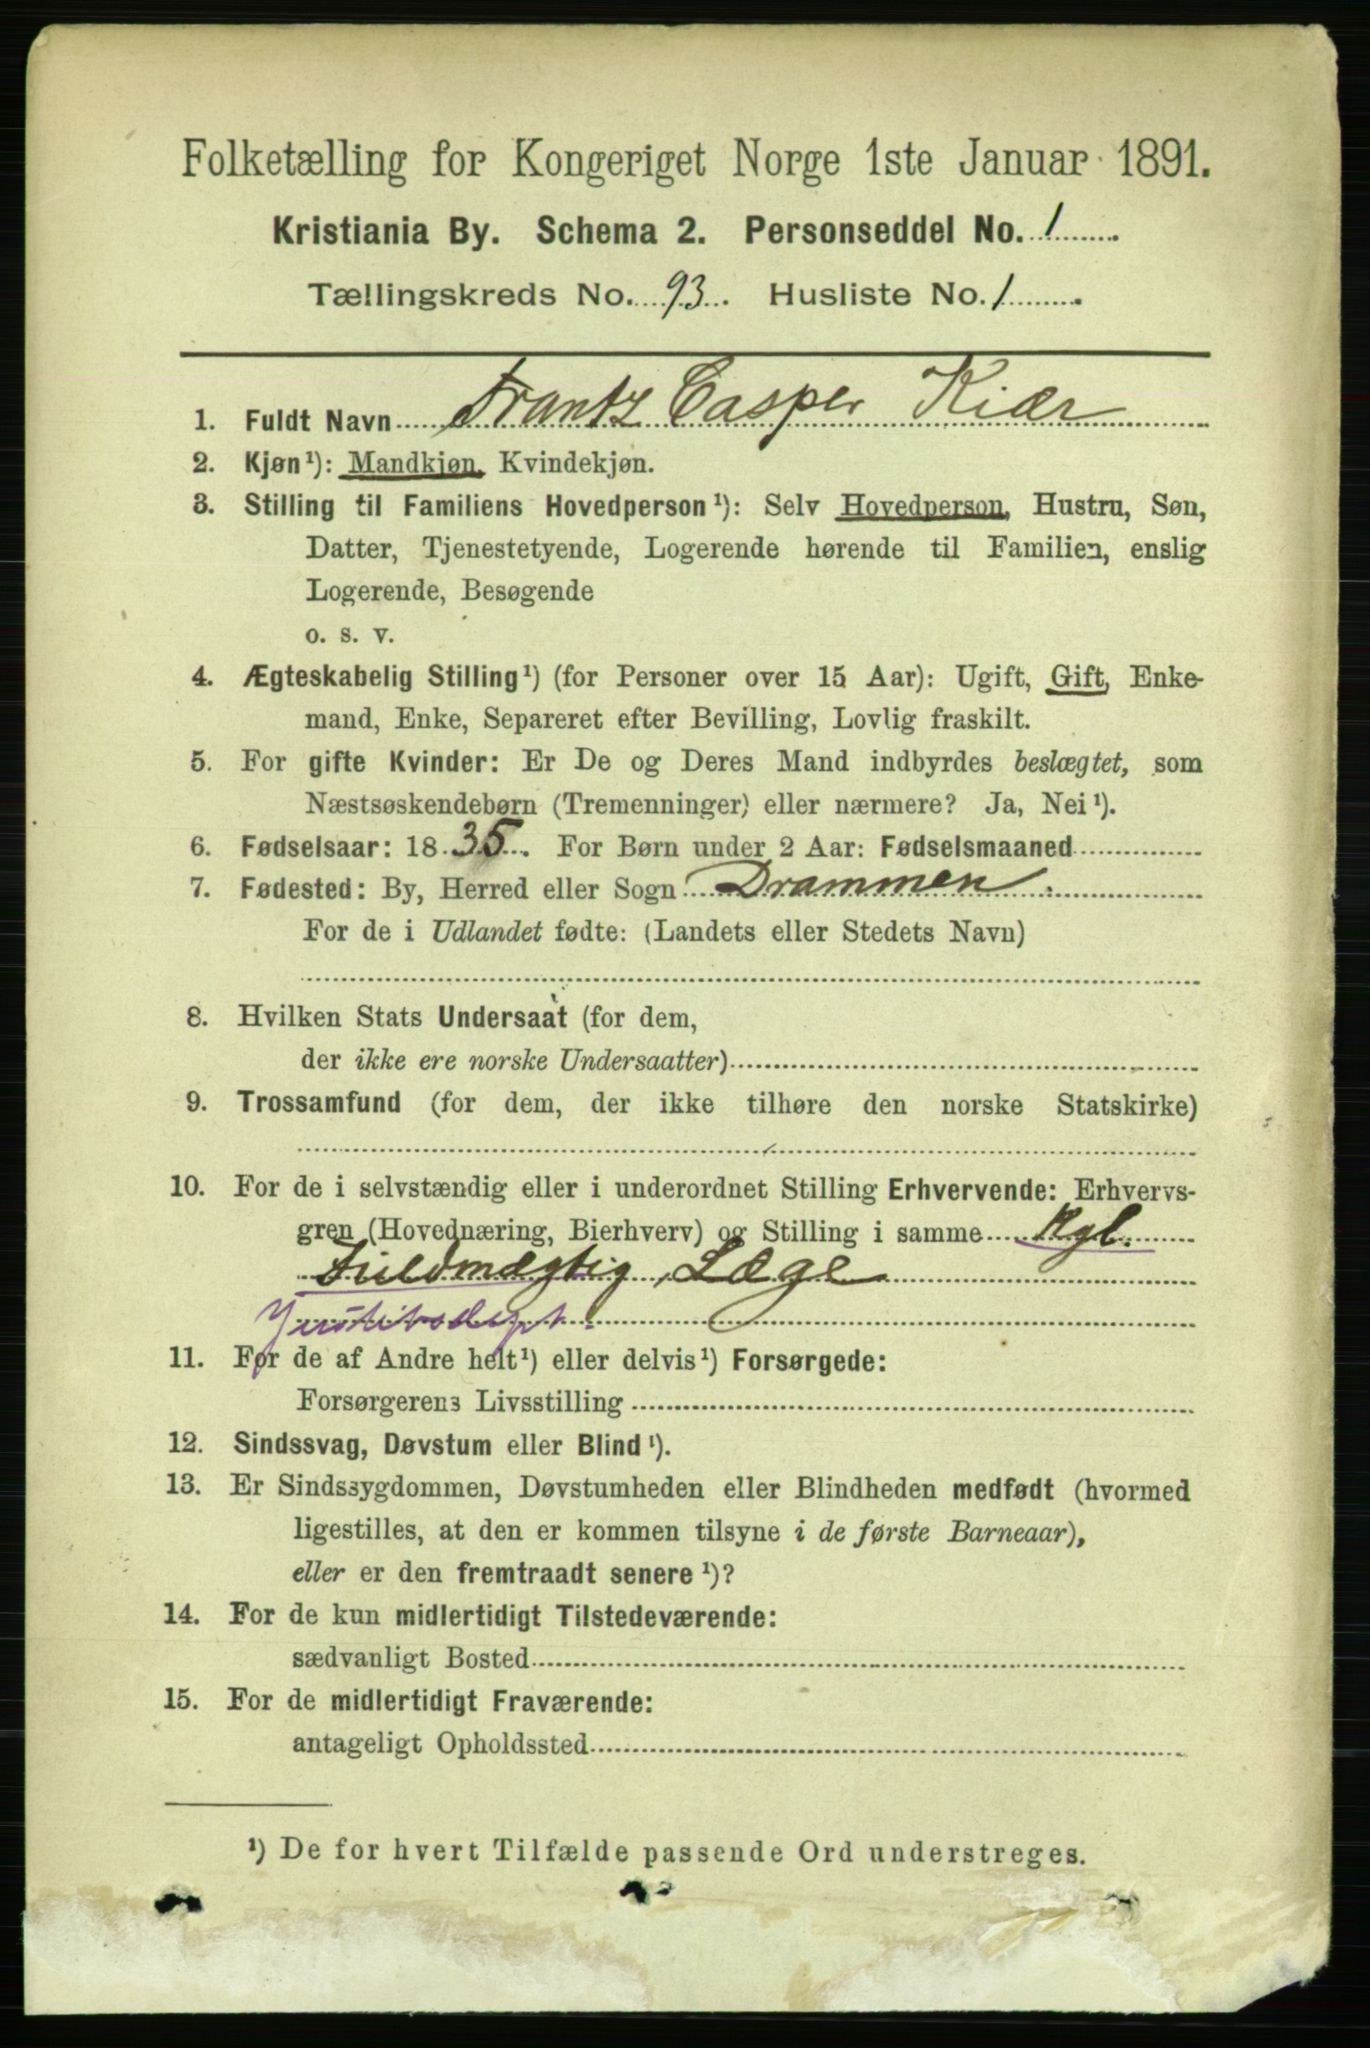 Folketælling for Kongeriget Norge 1ste Januar 1891.
Kristiania By. Schema 2. Personseddel No. 1
Tællingskreds No. 93. Husliste No. 1
1. Fuldt Navn Frantz Casper Kiær
2. Kjøn¹): Mandkjøn, Kvindekjøn.
3. Stilling til Familiens Hovedperson¹): Selv Hovedperson, Hustru, Søn,
Datter, Tjenestetyende, Logerende hørende til Familien, enslig
Logerende, Besøgende
o. s. v.
4. Ægteskabelig Stilling¹) (for Personer over 15 Aar): Ugift, Gift, Enke-
mand, Enke, Separeret efter Bevilling, Lovlig fraskilt.
5. For gifte Kvinder: Er De og Deres Mand indbyrdes beslægtet, som
Næstsøskendebørn (Tremenninger) eller nærmere? Ja, Nei¹).
6. Fødselsaar: 1835. For Børn under 2 Aar: Fødselsmaaned
7. Fødested: By, Herred eller Sogn Drammen.
For de i Udlandet fødte: (Landets eller Stedets Navn)
8. Hvilken Stats Undersaat (for dem,
der ikke ere norske Undersaatter)
9. Trossamfund (for dem, der ikke tilhøre den norske Statskirke)
10. For de i selvstændig eller i underordnet Stilling Erhvervende: Erhvervs-
gren (Hovednæring, Bierhverv) og Stilling i samme Kgl.
Fuldmægtig, Læge
Justitsdept.
11. For de af Andre helt¹) eller delvis¹) Forsørgede:
Forsørgerens Livsstilling
12. Sindssvag, Døvstum eller Blind¹).
13. Er Sindssygdommen, Døvstumheden eller Blindheden medfødt (hvormed
ligestilles, at den er kommen tilsyne i de første Barneaar),
eller er den fremtraadt senere¹)?
14. For de kun midlertidigt Tilstedeværende:
sædvanligt Bosted
15. For de midlertidigt Fraværende:
antageligt Opholdssted
¹) De for hvert Tilfælde passende Ord understreges.